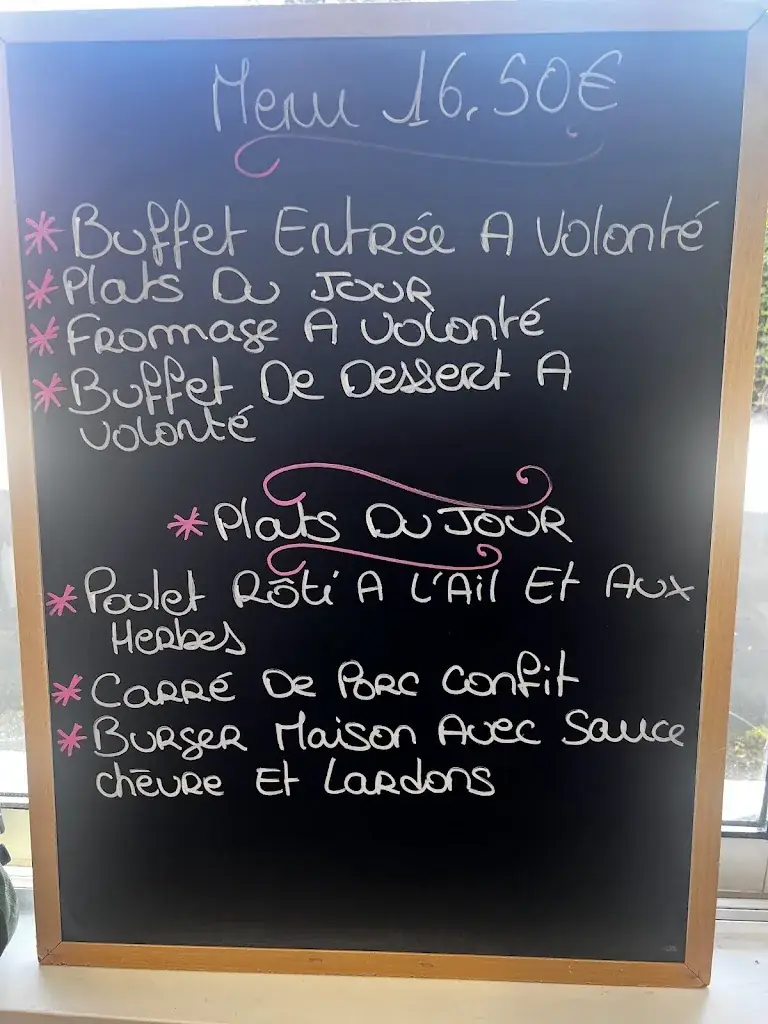 Menu 16.50€
* Buffet Entrée A Volonté
* Plats Du Jour
* Fromage A Volonté
* Buffet De Dessert A
Volonté
* Plats Du Jour
* Poulet Rôti A L'Ail Et Aux
Herbes
* Carré De Porc Confit
* Burger Maison Avec Sauce
chèvre Et Lardons